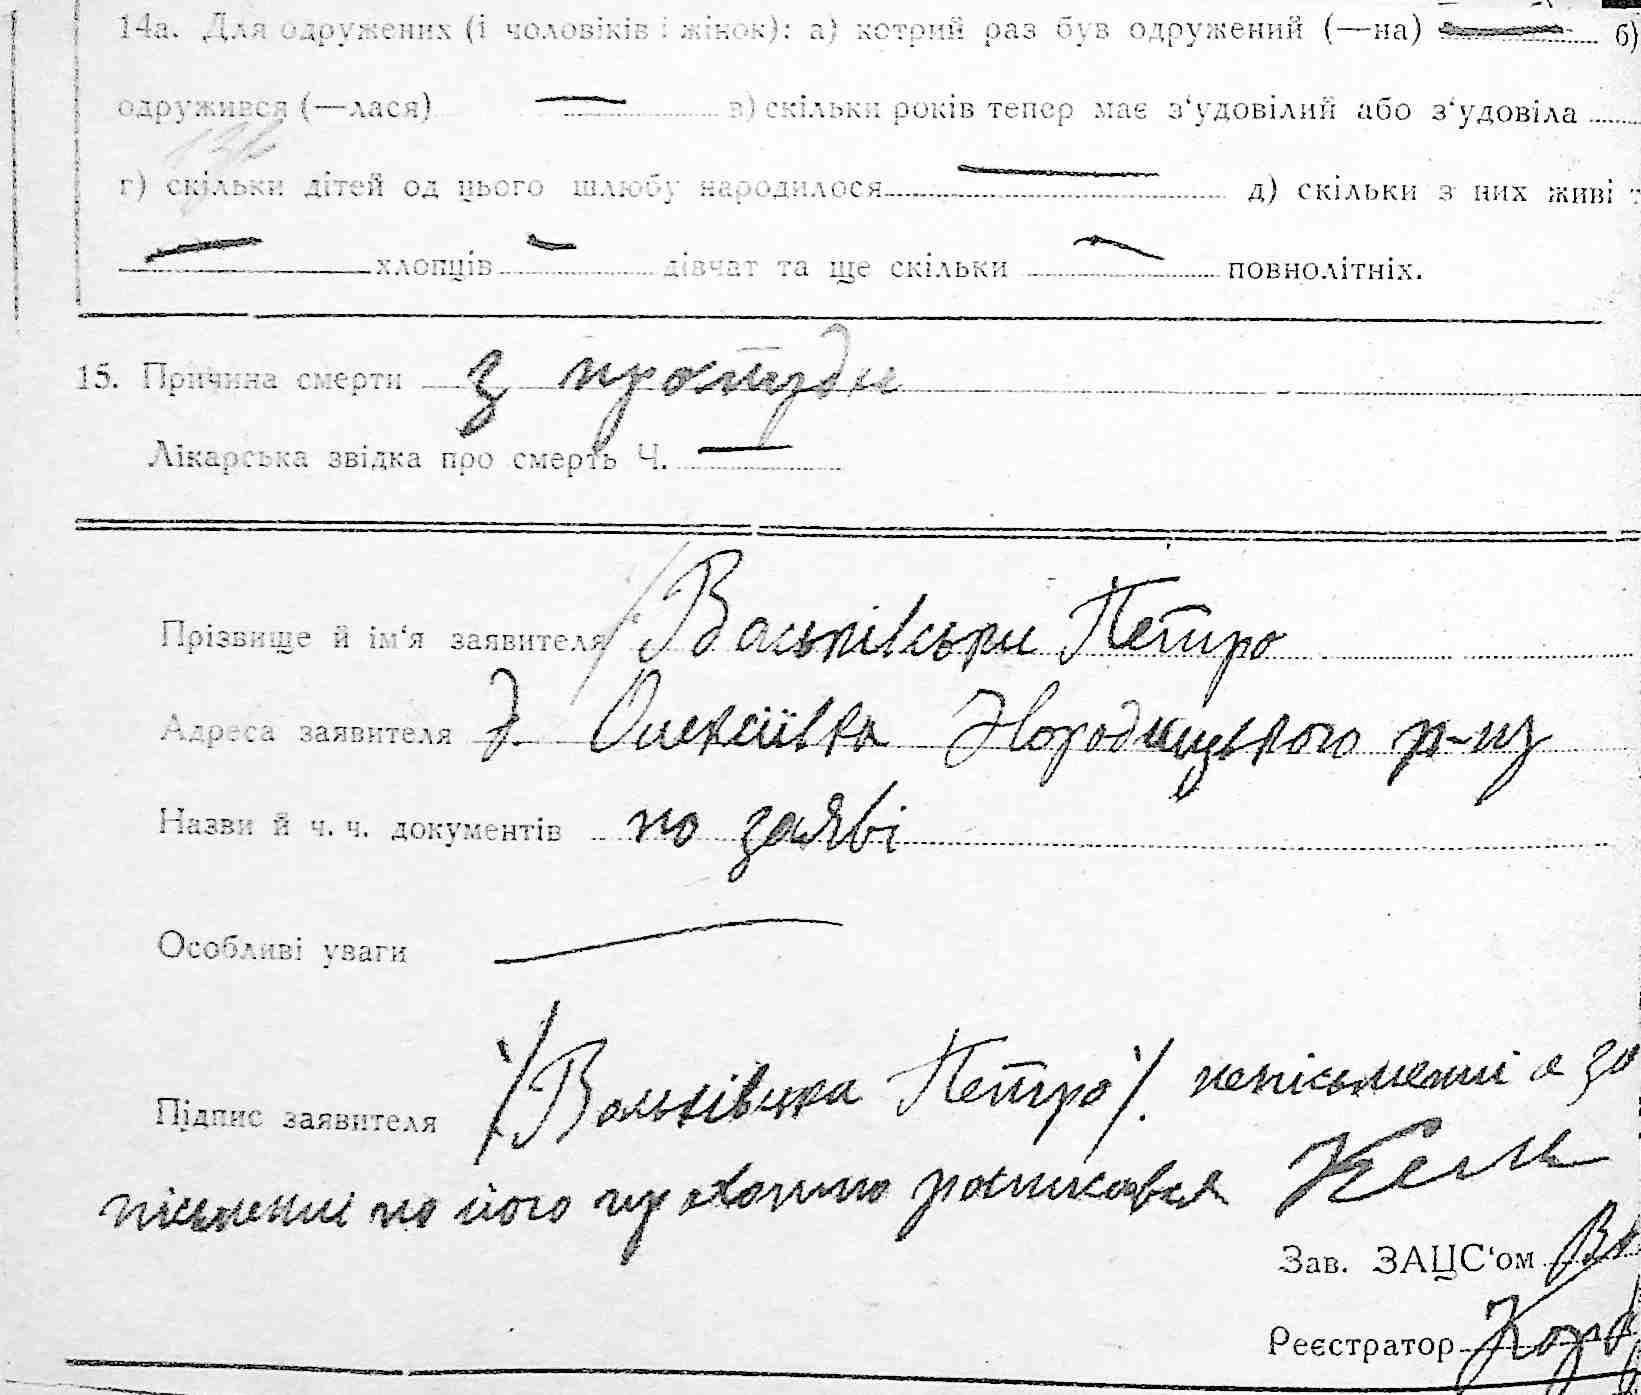 14а. Для одружених (і чоловіків і жінок): а) котрий раз був одружений (—на) б)
одружився (—лася) в) скільки років тепер має з‘удовілий або з‘удовіла
г) скільки дітей од цього шлюбу народилося д) скільки з них живі
хлопців дівчат та ще скільки повнолітніх.
15. Причина смерти з простуди
Лікарська звідка про смерть Ч.
Прізвище й ім‘я заявителя Петро
Адреса заявителя д. Олексіївка р-ну
Назви й ч. ч. документів по заяві
Особливі уваги
Підпис заявителя Петро неписьменні а за
по його росписався
Зав. ЗАЦС‘ом
Реєстратор